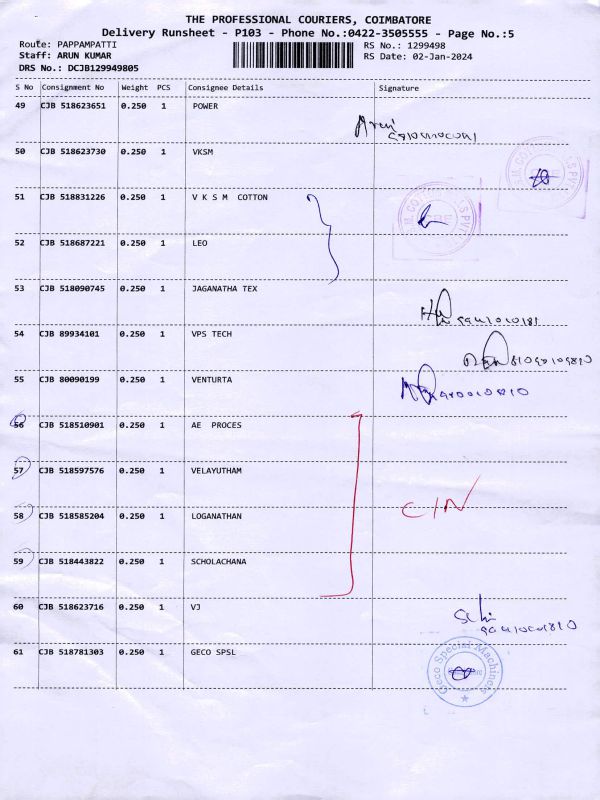 THE PROFESSIONAL COURIERS, COIMBATORE
Delivery Runsheet - P103 - Phone No.:0422-3505555 - Page No.:5
Route: PAPPAMPATTI RS No.: 1299498
Staff: ARUN KUMAR RS Date: 02-Jan-2024
DRS No.: DCJB129949805
S No Consignment No Weight PCS Consignee Details Signature
49 CJB 518623651 0.250 1 POWER
50 CJB 518623730 0.250 1 VKSM
51 CJB 518831226 0.250 1 V K S M COTTON
52 CJB 518687221 0.250 1 LEO
53 CJB 518090745 0.250 1 JAGANATHA TEX
54 CJB 89934101 0.250 1 VPS TECH
55 CJB 80090199 0.250 1 VENTURTA
56 CJB 518510901 0.250 1 AE PROCES
57 CJB 518597576 0.250 1 VELAYUTHAM
58 CJB 518585204 0.250 1 LOGANATHAN
C/N
59 CJB 518443822 0.250 1 SCHOLACHANA
60 CJB 518623716 0.250 1 VJ
61 CJB 518781303 0.250 1 GECO SPSL
Geco Special Machinets